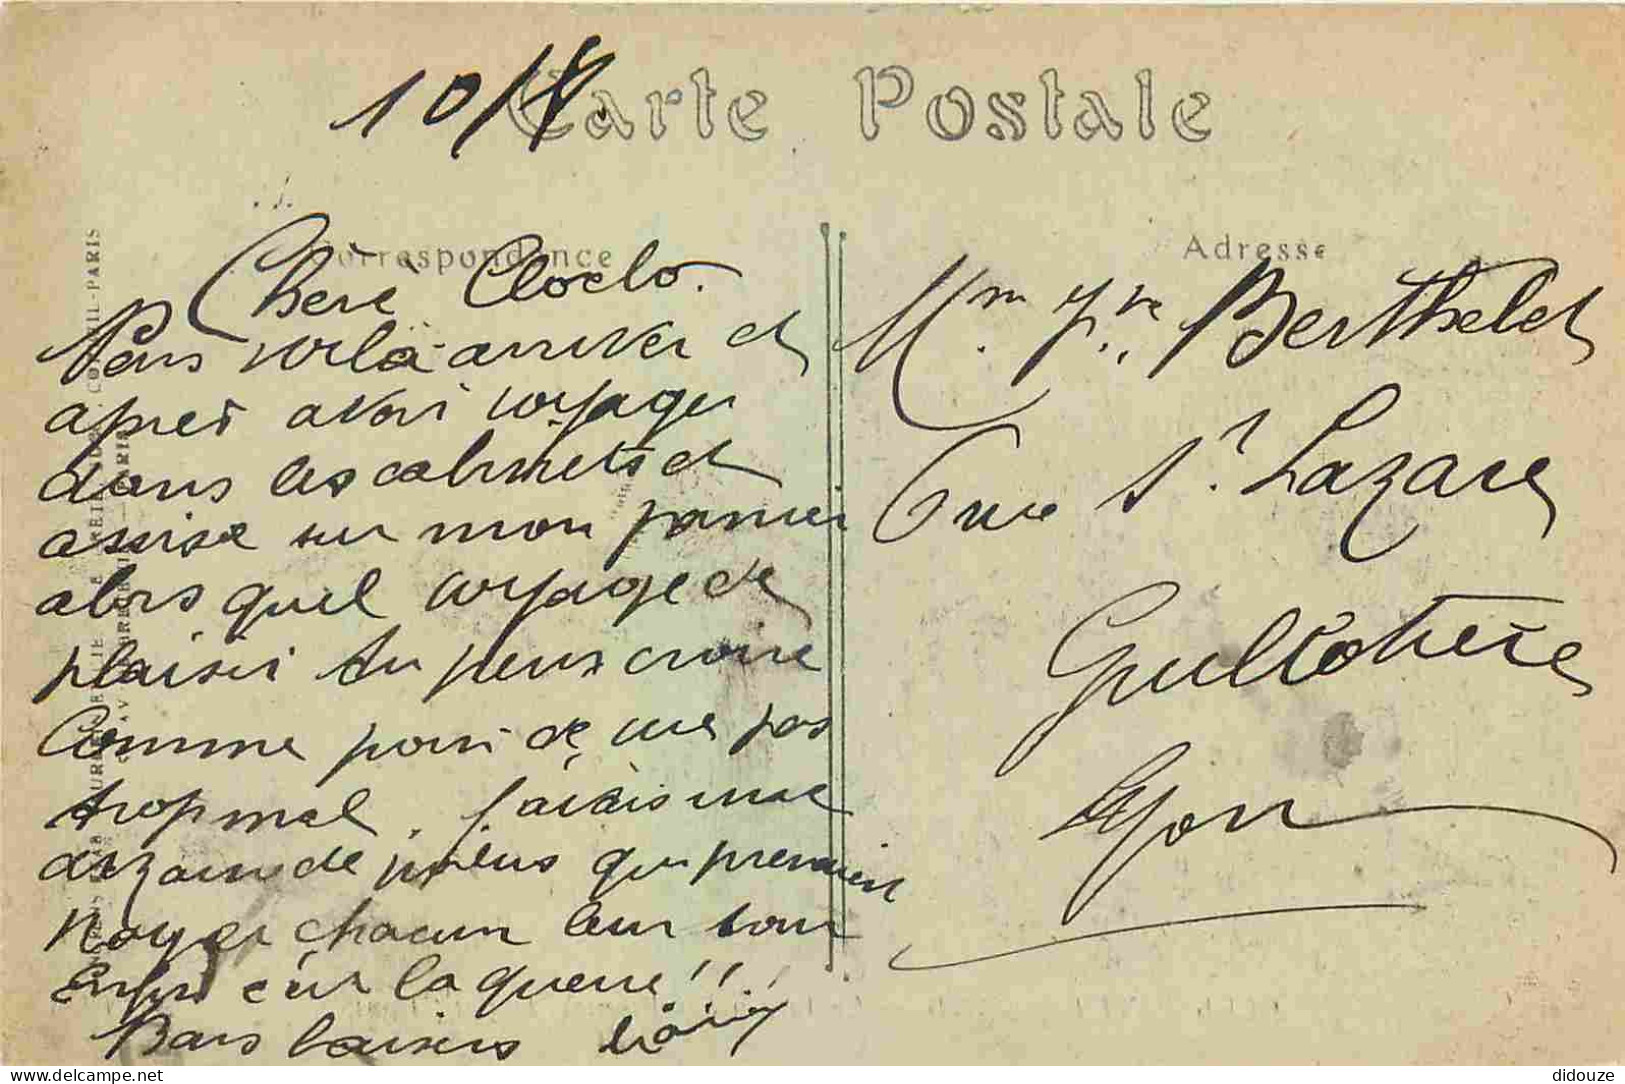 10/8
Carte Postale
Correspondance
Adresse
Chère Cloclo.
Nous voilà arriver et
après avoir voyager
dans les cabinets et
assise sur mon panier
alors quel voyage de
plaisir tu peux croire
Comme poire de vue pas
trop mal, j'avais une
dizaine de poilus qui prenaient
chacun leur tour
Enfin c'est la guerre!!
Bons baisers
Mme Vve Berthelet
6 rue St Lazare
Guillotière
Lyon
didouze